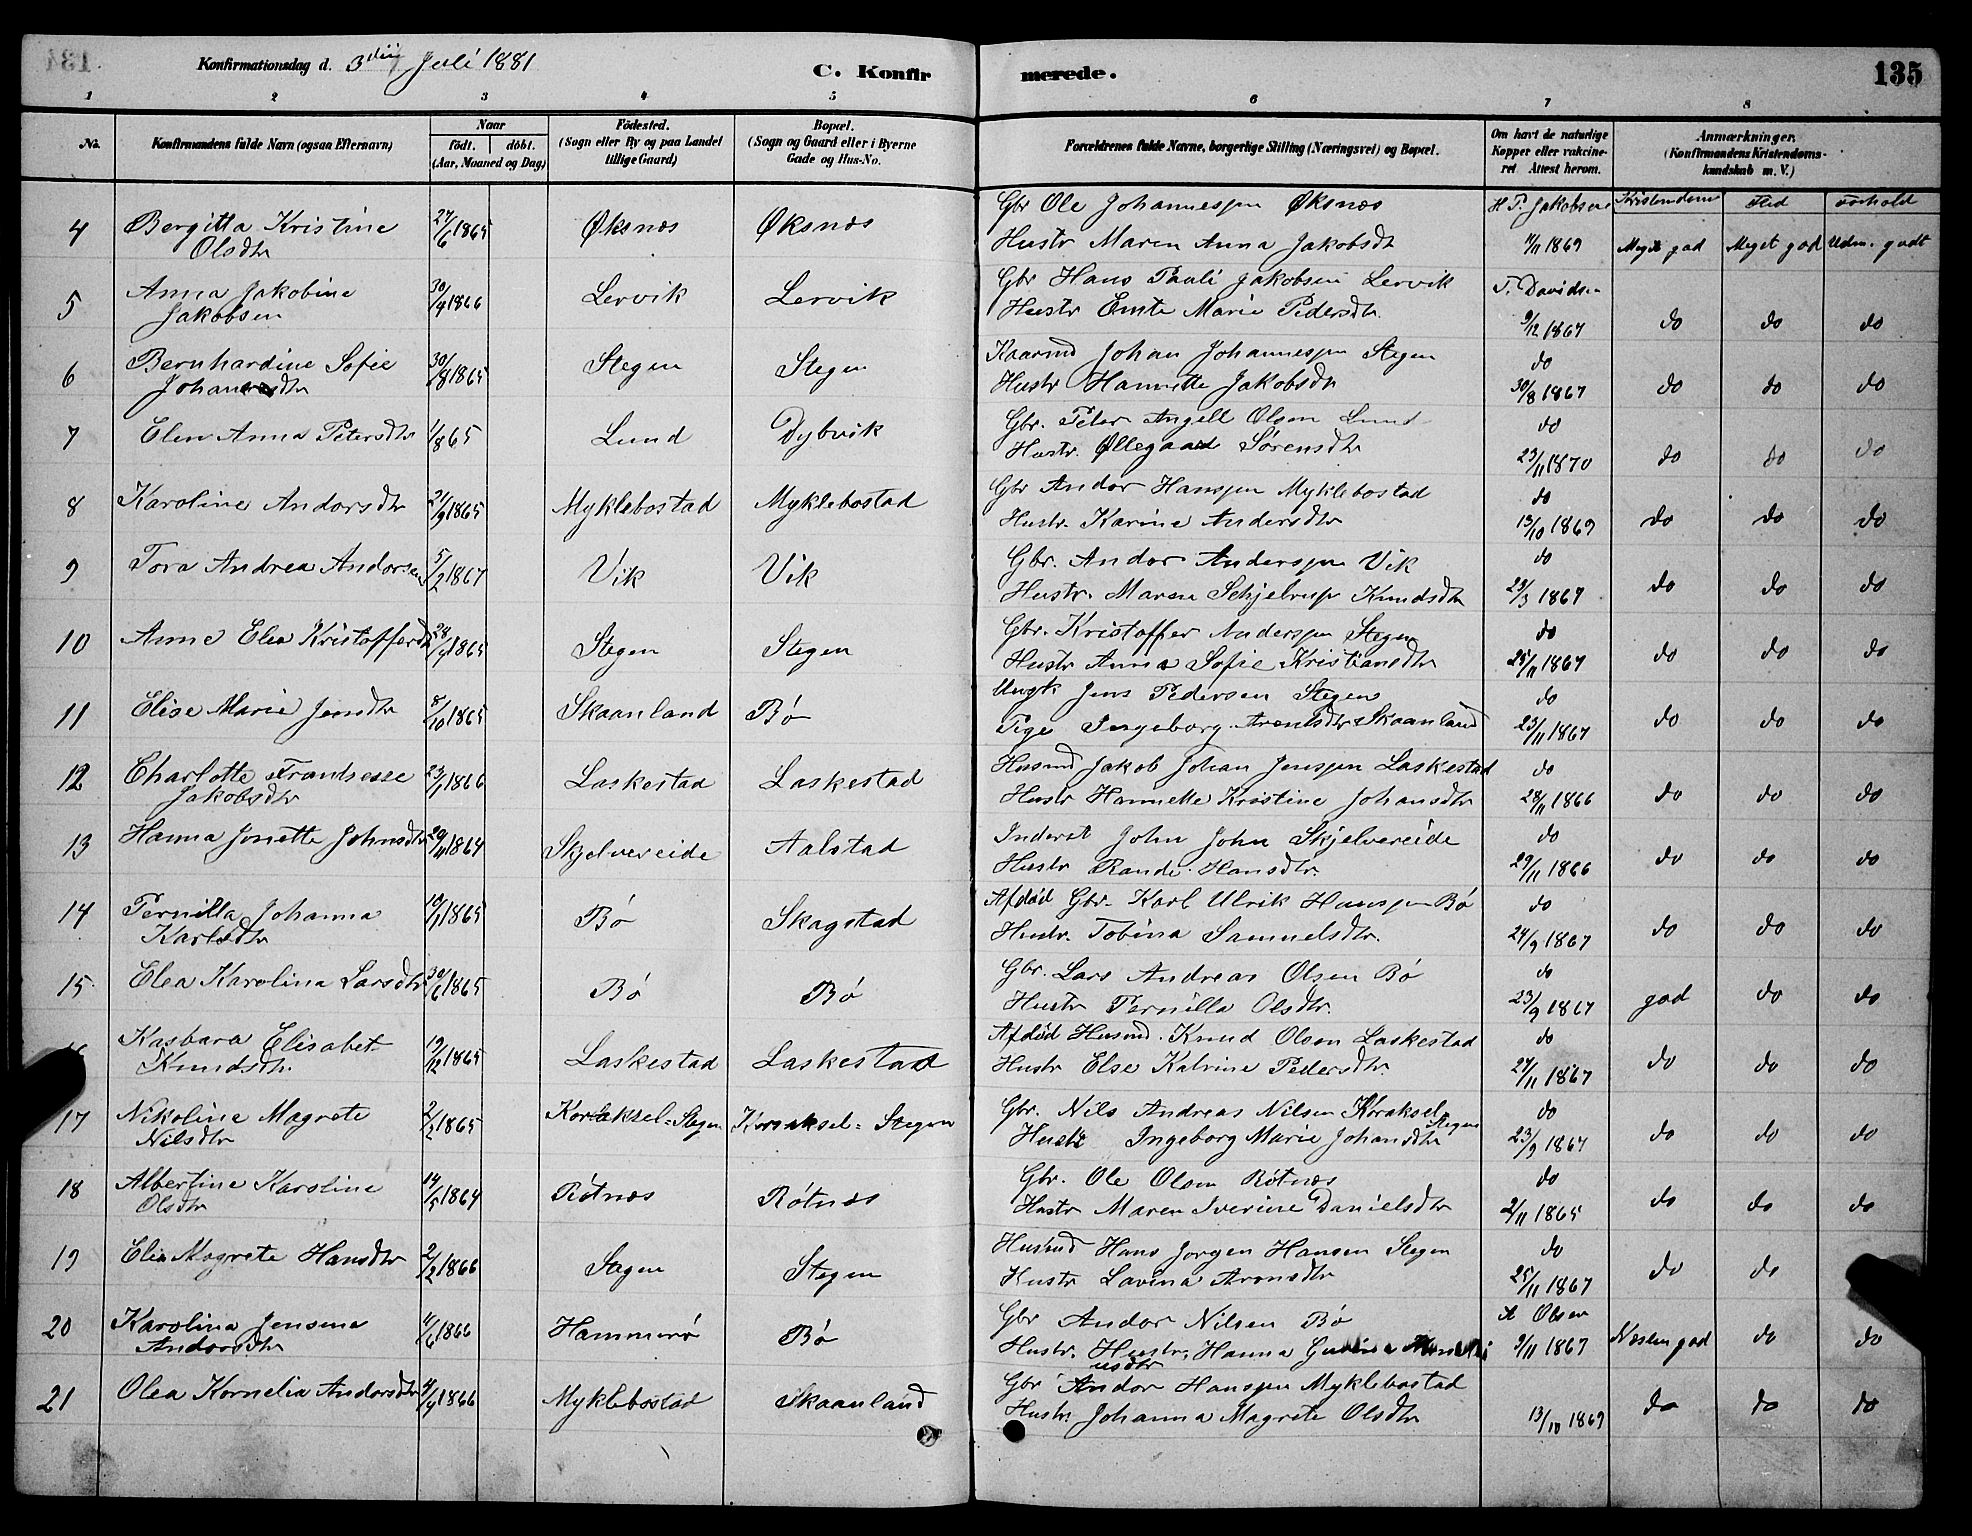 134
Konfirmationsdag d. 3die Juli 1881
C. Konfirmerede.
135
1 2 3 4 5 6 7 8
No.
Konfirmandens fulde Navn (ogsaa Efternavn)
Naar
födt. döbt.
(Aar, Maaned og Dag)
Födested.
(Sogn eller By og paa Landet
tillige Gaard)
Bopæl.
(Sogn og Gaard eller i Byerne
Gade og Hus-No.
Forældrenes fulde Navne, borgerlige Stilling (Næringsvei) og Bopæl.
Om havt de naturlige
Kopper eller vakcine-
ret Attest herom.
Anmærkninger.
(Konfirmandens Kristendoms-
kundskab m. V.)
Kristendom Flid Forhold
4 Bergitta Kristine 27/6 1865 Øksnæs Øksnæs Gbr Ole Johannessen Øksnæs H P. Jakobsen
Olsdtr Hustr Maren Anna Jakobsdt 4/11 1869 Meget god Meget god Udm. godt
5 Anna Jakobine 30/9 1866 Lervik Lervik Gbr Hans Pauli Jakobsen Lervik T. Davidsen
Jakobsen Hustr Emte Marie Pedersdtr. 9/12 1867 do do do
6 Bernhardine Sofie 30/8 1865 Stegen Stegen Kaarmd Johan Johannessen Stegen do
Johansdtr Hustr Hannette Jakobsdtr 30/8 1867 do do do
7 Elen Anna Petersdtr 1/8 65 Lund Dybvik Gbr. Peter Angell Olsen Lund do
Hustr. Øllegaard Sørensdtr 23/11 1870 do do do
8 Karoline Andorsdtr 21/9 1865 Myklebostad Myklebostad Gbr Andor Hanssen Myklebostad do
Hustr. Karine Andersdtr 13/10 1869 do do do
9 Tora Andrea Andorsen 5/2 1867 Vik Vik Gbr. Andor Anderssen Vik do
Hustr. Maren Schjelrup Knudsdtr 29/3 1867 do do do
10 Anne Elea Kristoffersdt 28/9 1865 Stegen Stegen Gbr. Kristoffer Anderssen Stegen do
Hustr Anna Sofie Kristiansdtr 25/11 1867 do do do
11 Elise Marie Jensdtr 8/10 1865 Skaanland Bø Ungk Jens Pedersen Stegen do
Pige Ingeborg Arentsdtr Skaanland 23/11 1867 do do do
12 Charlotte Frantsesse 23/1 1866 Laskestad Laskestad Husmd Jakob Johan Jenssen Laskestad do
Jakobsdtr Hustr Hannette Kristine Johansdtr 28/11 1866 do do do
13 Hanna Jonette Johnsdtr 20/11 1864 Skjelvereide Aalstad Inderst John John Skjelvereide do
Hustr Rande Hansdtr. 29/11 1866 do do do
14 Pernilla Johanna 10/1 1865 Bø Skagstad Afdød Gbr. Karl Ulrik Hanssen Bø do
Karlsdtr Hustr. Tobina Samuelsdtr. 24/9 1867 do do do
15 Elea Karolina Larsdtr 30/6 1865 Bø Bø Gbr. Lars Andreas Olsen Bø do
Hustr Pernilla Olsdtr. 23/9 1867 god do do
Kasbara Elisabet 19/12 1865 Laskestad Laskestad Afdød Husmd. Knud Olsen Laskestad do
Knudsdtr. Hustr Else Katrine Pedersdtr. 27/11 1867 do do do
17 Nikolina Magrete 2/2 1865 Koraksel=Stegen Koraksel=Stegen Gbr. Nils Andreas Nilsen Koraksel=Stegen do
Nilsdtr Hustr Ingeborg Marie Johansdtr 23/9 1867 do do do
18 Albertine Karoline 14/5 1864 Røtnæs Røtnæs Gbr. Ole Olsen Røtnæs do
Olsdtr Hustr Maren Iverine Danielsdtr 2/11 1865 do do do
19 Elia Magrete Hansdtr 2/2 1866 Stegen Stegen Husmd Hans Jørgen Hansen Stegen do
Hustr Lavina Aronsdtr 25/11 1867 do do
20 Karolina Jensina 4/6 1866 Hammerø Bø Gbr Andor Nilsen Bø A Olsen
Andorsdtr Hustr. Hustr. Hanna 9/11 1867 Næsten god do do
usdtr
21 Olea Kornelia Andorsdtr 4/9 1866 Myklebostad Skaanland Gbr Andor Hanssen Myklebostad
Hustr. Johanna Magrete Olsdtr 13/10 1869 do do do